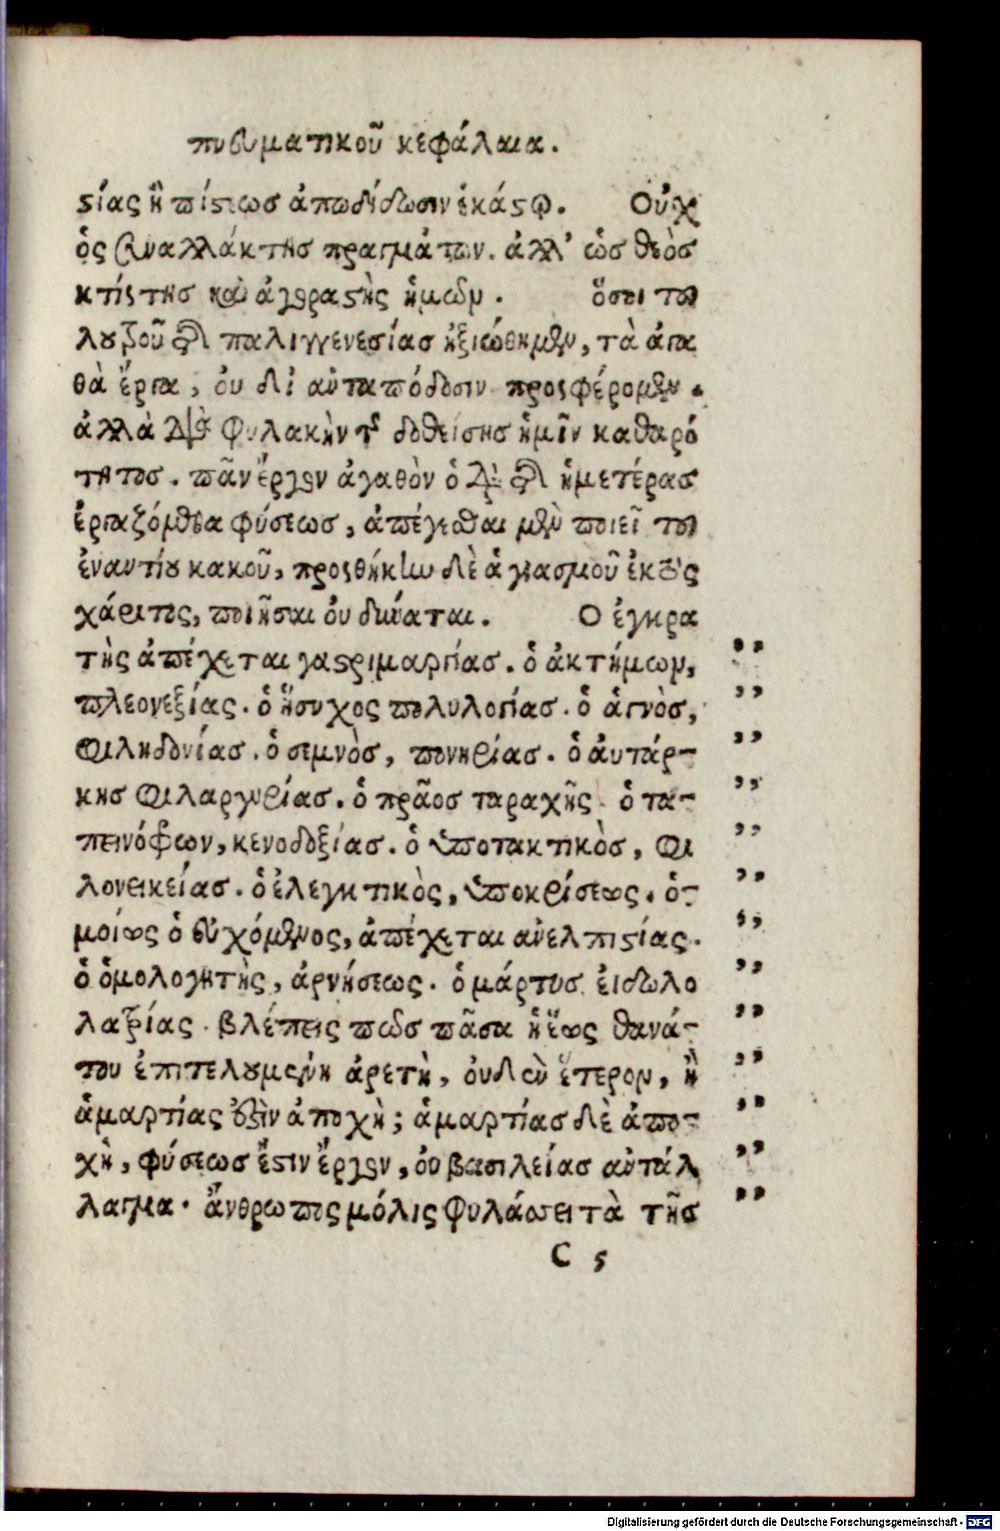 πνευματικοῦ κεφάλαια.
στίας ἢ πίστεως ἀποδίδωσιν ἑκάστῳ. Οὐχ
ὁς συναλλάκτης πραγμάτων. ἀλλ' ὡς θεὸς
κτίστης καὶ ἀγοραστὴς ἡμῶν. ὅσοι τοῦ
λουτροῦ τῆς παλιγγενεσίας ἠξιώθημεν, τὰ ἀγα
θὰ ἔργα, οὐ δι' ἀνταπόδοσιν προσφέρομεν.
ἀλλὰ διὰ φυλακὴν τῆς δοθείσης ἡμῖν καθαρό
τητος. πᾶν ἔργον ἀγαθὸν ὃ διὰ τῆς ἡμετέρας
ἐργαζόμεθα φύσεως, ἀπέχεσθαι μὲν ποιεῖ τοῦ
ἐναντίου κακοῦ, προσθήκην δὲ ἁγιασμοῦ ἐκτὸς
χάριτος, ποιῆσαι οὐ δύναται. Ο ἐγκρα
τὴς ἀπέχεται γαστριμαργίας. ὁ ἀκτήμων,
πλεονεξίας. ὁ ἥσυχος πολυλογίας. ὁ ἁγνὸς,
φιληδονίας. ὁ σεμνὸς, πονηρίας. ὁ αὐτάρ-
κης φιλαργυρίας. ὁ πρᾶος ταραχῆς. ὁ τα-
πεινόφρων, κενοδοξίας. ὁ ὑποτακτικὸς, φι
λονεικείας. ὁ ἐλεγκτικὸς, ὑποκρίσεως. ὁ-
μοίως ὁ εὐχόμενος, ἀπέχεται ἀνελπιστίας.
ὁ ὁμολογητὴς, ἀρνήσεως. ὁ μάρτυς εἰδωλο
λατρίας. βλέπεις πῶς πᾶσα ἡ ἕως θανά-
του ἐπιτελουμένη ἀρετὴ, οὐδὲν ἕτερον, ἢ
ἁμαρτίας ἐστὶν ἀποχὴ; ἁμαρτίας δὲ ἀπο-
χὴ, φύσεως ἔστιν ἔργον, οὐ βασιλείας ἀντάλ
λαγμα. ἄνθρωπος μόλις φυλάσσει τὰ τῆς
C 5
Digitalisierung gefördert durch die Deutsche Forschungsgemeinschaft - DFG